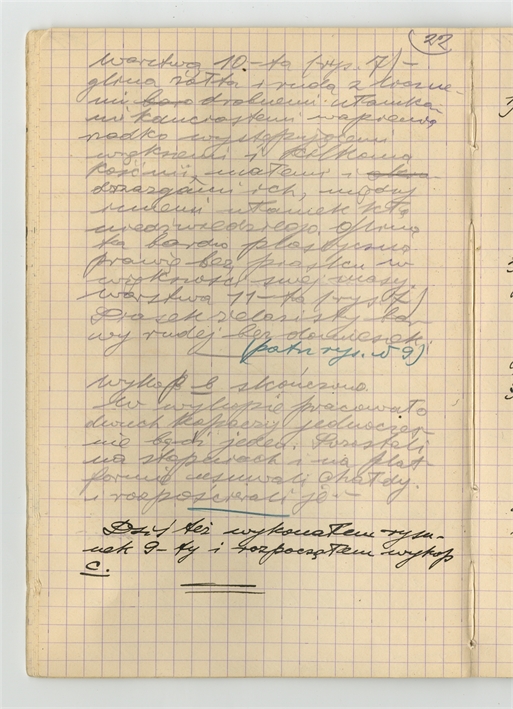 22
Warstwa 10-ta (rys. 7) -
glina żółta i ruda z licznemi
drobnemi ułamka-
mi kanciastemi wapienia,
rzadko występującemi
większemi i kilkoma
kośćmi, małemi i
drzazgami ich, między
innemi ułamek kła
niedźwiedziego. Glina
ta bardzo plastyczna
prawie bez piasku w
większości swej masy.
Warstwa 11-ta (rys. 7)
Piasek żelazisty bar-
wy rudej bez domieszek.
(patrz rys. № 9)
Wykop b skończono.
W wykopie pracowało
dwuch kopaczy jednocześ-
nie bądź jeden. Pozostali
na stopniach i na plat-
formie usuwali
i rozpościerali je -
Dziś też wykonałem rysu-
nek 9-ty i rozpocząłem wykop
c.